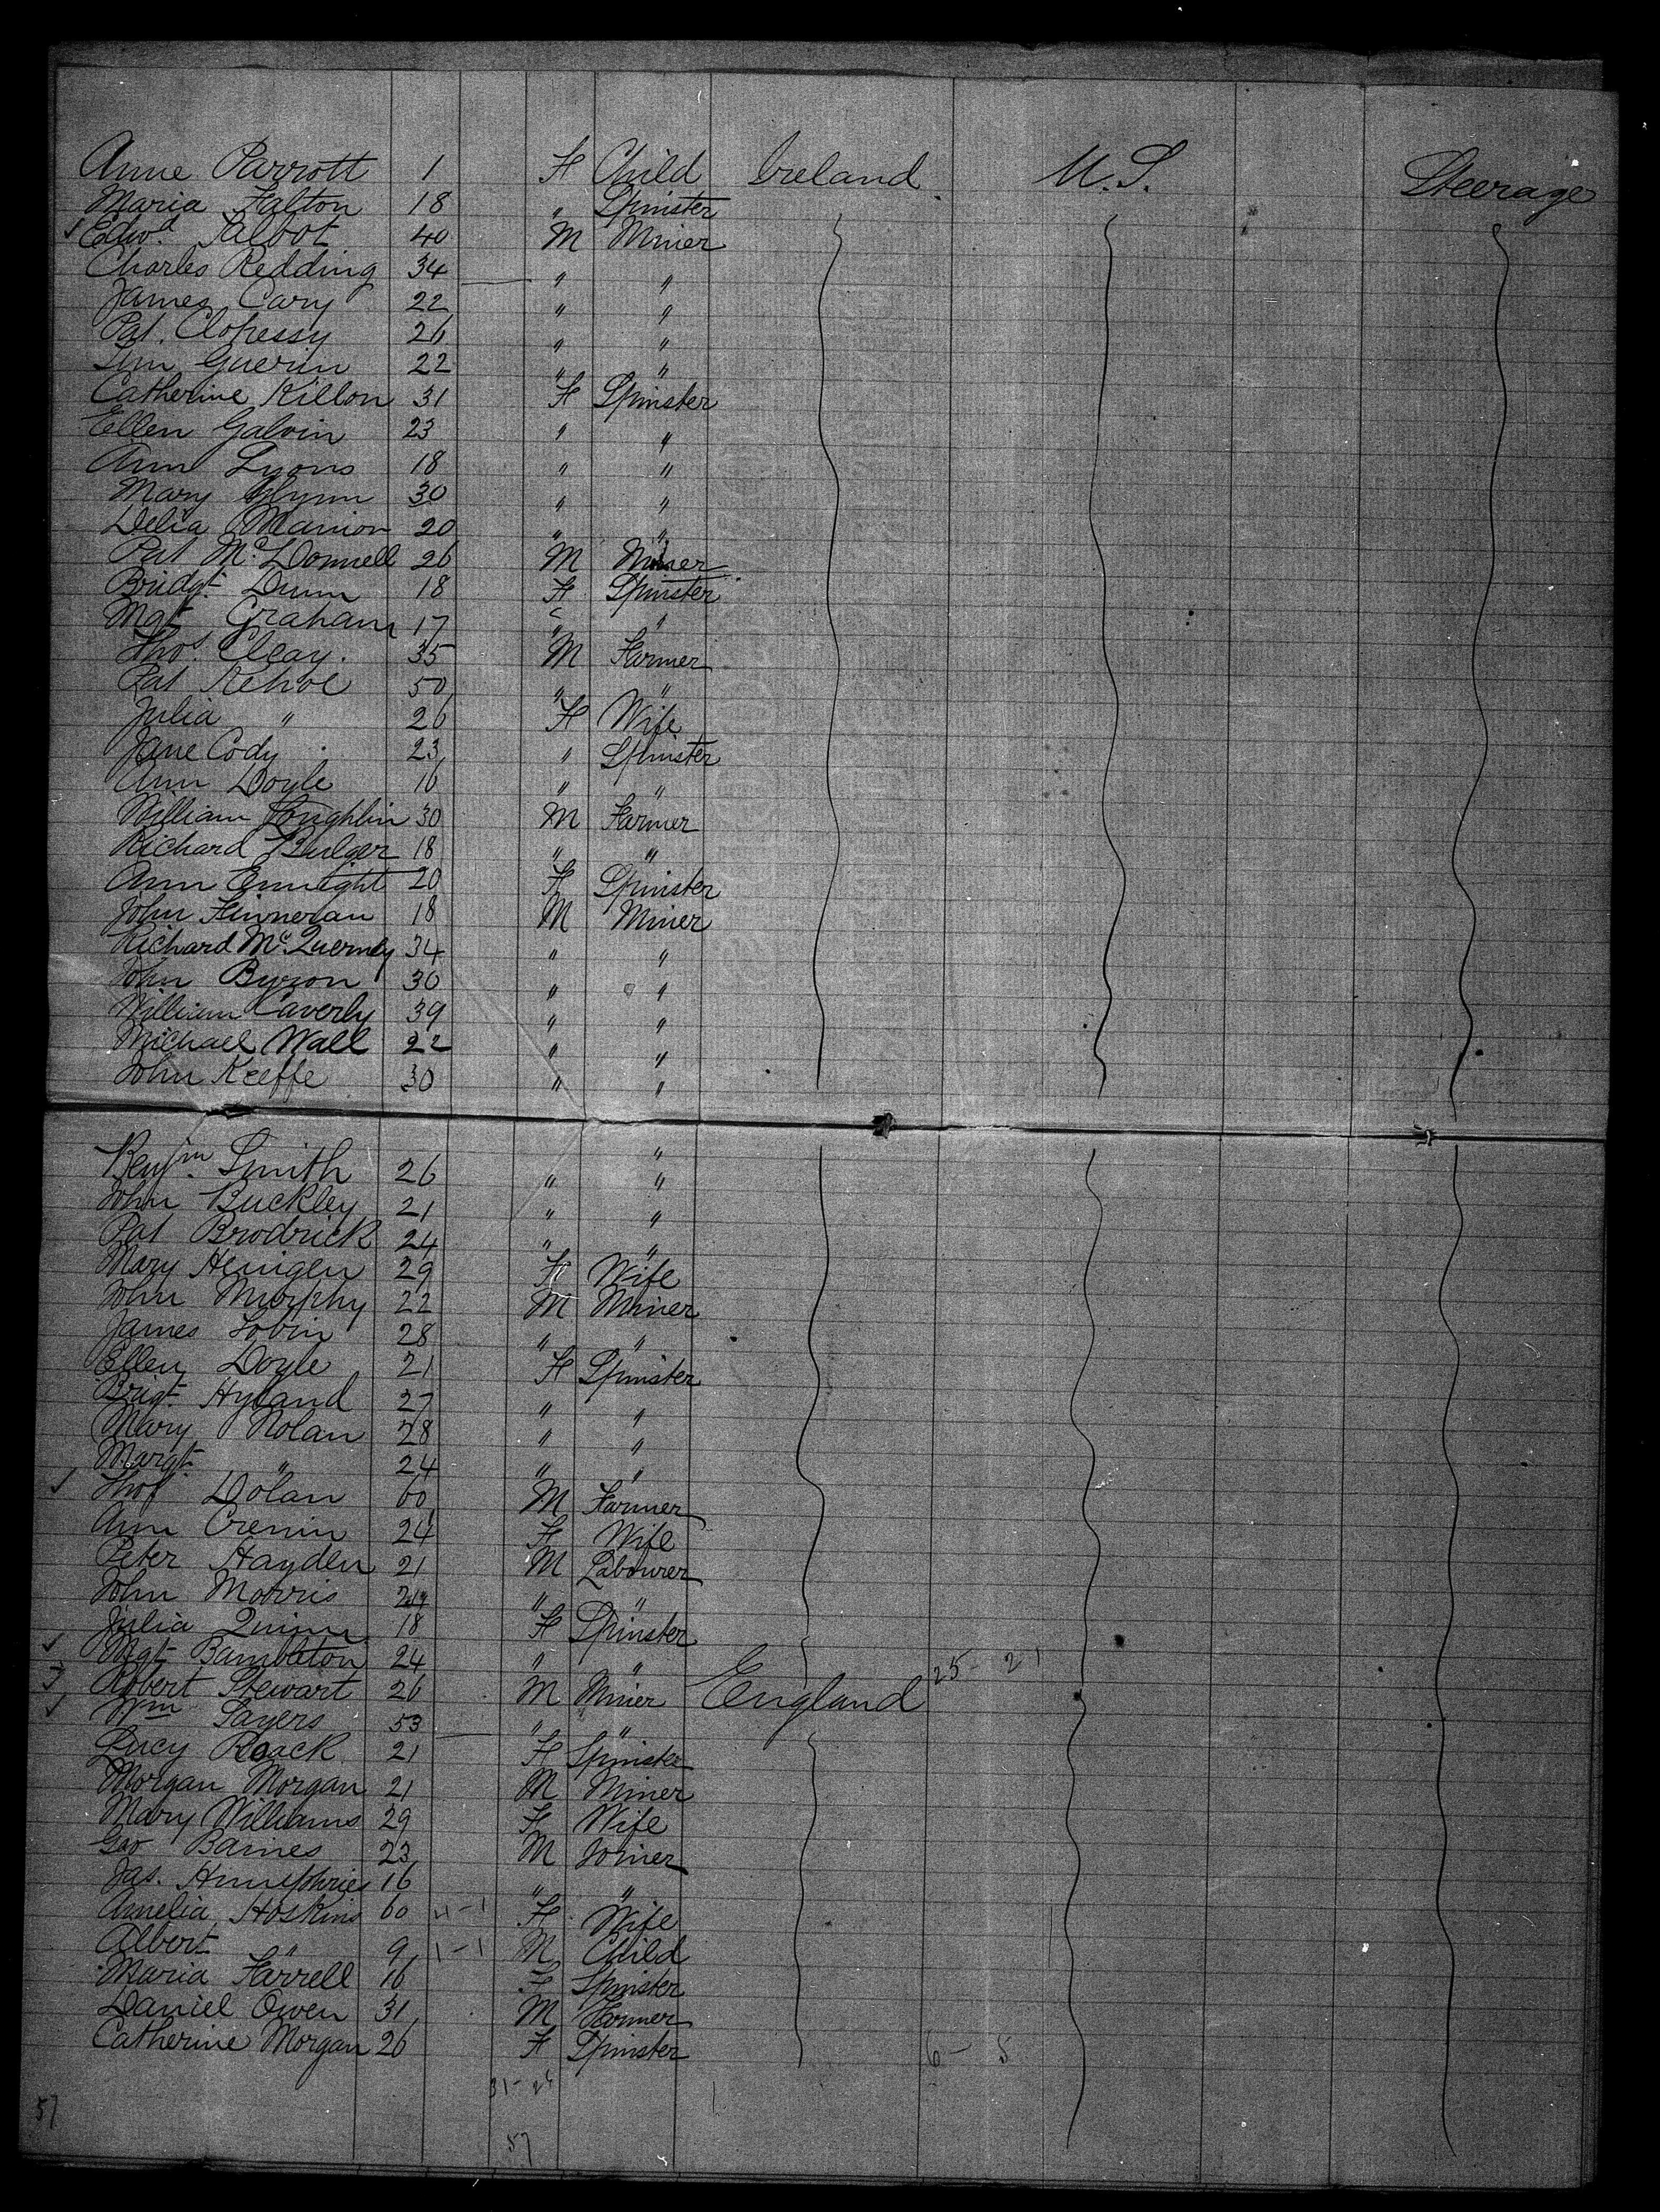 Anne Parrott 1 F Child Ireland U.S. Steerage
Maria Falton 18 " Spinster
✓ Edwd Talbot 40 M Miner
Charles Redding 34 " "
James Cary 22 " "
Pat. Clohessy 26 " "
Tim Guerin 22 " "
Catherine Killon 31 F Spinster
Ellen Galvin 23 " "
Ann Lyons 18 " "
Mary Glynn 30 " "
Delia Manion 20 " "
Pat McDonnell 26 M Miner
Bridgt Dunn 18 F Spinster
Mgt Graham 17 " "
Thos. Cleay. 35 M Farmer
Pat Kehoe 50 " "
Julia " 26 F Wife
Jane Cody 23 " Spinster
Ann Doyle 16 " "
William Loughlin 30 M Farmer
Richard Bulger 18 " "
Ann Enright 20 F Spinster
John Finneran 18 M Miner
Richard Mc 34 " "
John Byron 30 " "
William Caverly 39 " "
Michael Wall 22 " "
John Keeffe 30 " "
"
Benjm. Smith 26 " "
John Buckley 21 " "
Pat Brodrick 24 " "
Mary Henigen 29 F Wife
John Murphy 22 M Miner
James Tobin 28 " "
Ellen Doyle 21 F Spinster
Brigt. Hyland 27 " "
Mary Nolan 28 " "
Margt. " 24 " "
✓ Thos Dolan 60 M Farmer
Ann Crenin 24 F Wife
Peter Hayden 21 M Labourer
John Morris " "
Julia Quinn 18 F Spinster
✓ Mgt Bambleton 24 " " 25 - 21
✓ Robert Stewart 26 M Miner England
✓ Wm Sayers 53 " "
Lucy Roack 21 F Spinster
Morgan Morgan 21 M Miner
Mary Williams 29 F Wife
Geo Baines 23 M Joiner
Jas. Humphries 16 " "
Amelia Hoskins 60 F Wife
Albert " 9 1-1 M Child
Maria Farrell 16 F Spinster
Daniel Owen 31 M Farmer
Catherine Morgan 26 F Spinster 6 - 5
57
57